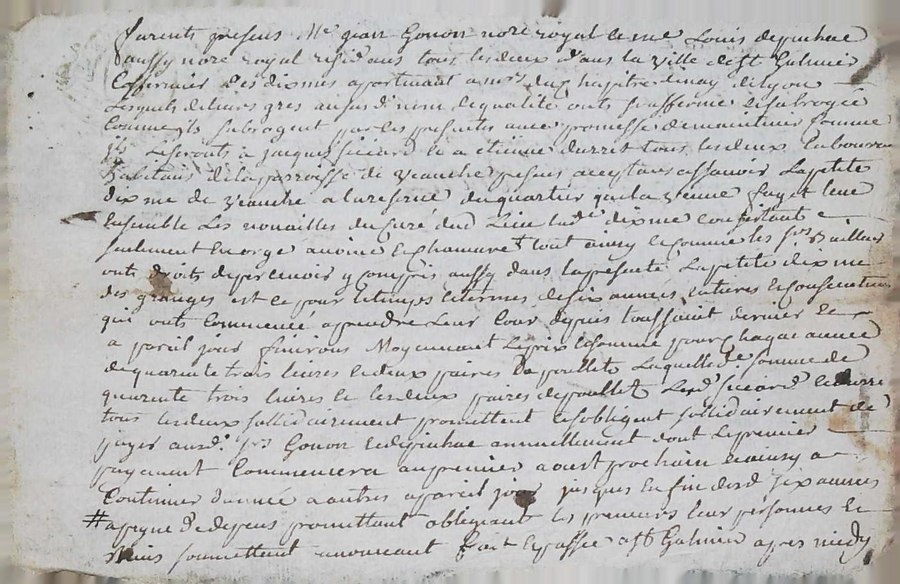 furent presens Me jean Gonon nore royal et me Louis depinhac
aussy nore royal residans tous lesdeux dans la ville de st Galmier
Cofermier des dixmes apartenant a mrs du chapitre de lyon
Lesquels de leurs gres au susd. nom et qualité onts souffermé et subrogée
Comme ils subrogent par les presentes avec promesse de maintenir
a jacques siccard et a etienne tous lesdeux Laboureurs
habitans de la parroisse de veauche presens aceptans assavoir La petite
dixme de veauche a la reserve du quartier
Ensemble Les novailles du Curé dud Lieu lad. dixme Consistant
seulement En orge avoine et chanvre tout ainsy et comme les srs Bailleurs
onts droits de percevoir y compris aussy dans la presente La petite dixme
des granges et ce pour le temps et termes de six années entieres et consecutives
qui onts Commencé a prendre Leur Cour depuis toussaint dernier et
a pareil jour finirons Moyennant Le prix et somme pour chaque année
de quarente trois livres et deux paires de poullets Laquelle de. somme de
quarente trois livres et lesdeux paires de poullets Lesd. siccard et
tous lesdeux sollidairement promettent et sobligent sollidairement de
payer ausd. srs Gonon et depinhac annuellement dont Le premier
payement Commencera au premier aoust prochain et ainsy a
Continuer dannée a autres a pareil jour jusques En fin desd. six années
# a peyne de depens promettant obligeant les preneurs leur personnes et
biens soumettant renonceant fait et passé a st Galmier apres midy